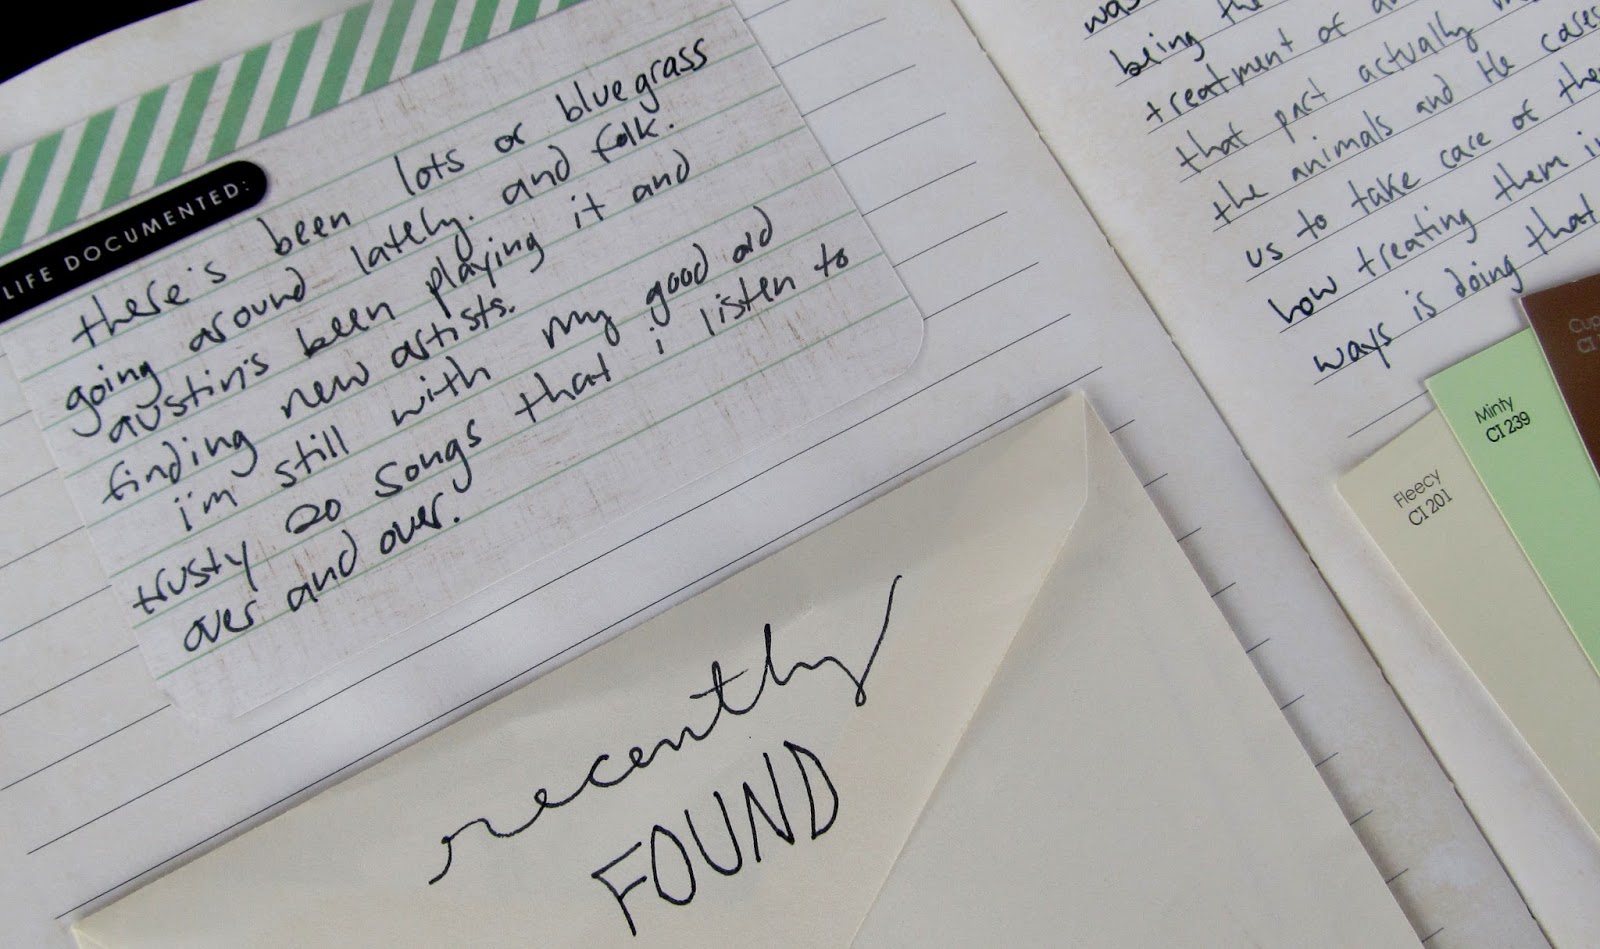 LIFE DOCUMENTED:
there's been lots of bluegrass
going around lately. and folk.
austin's been playing it and
finding new artists.
i'm still with my good old
trusty 20 songs that i listen to
over and over.
recently
FOUND
was
being the
treatment of
that part actually
the animals and the cases
us to take care of
how treating them
ways is doing that
Minty
CI 239
Fleecy
CI 201